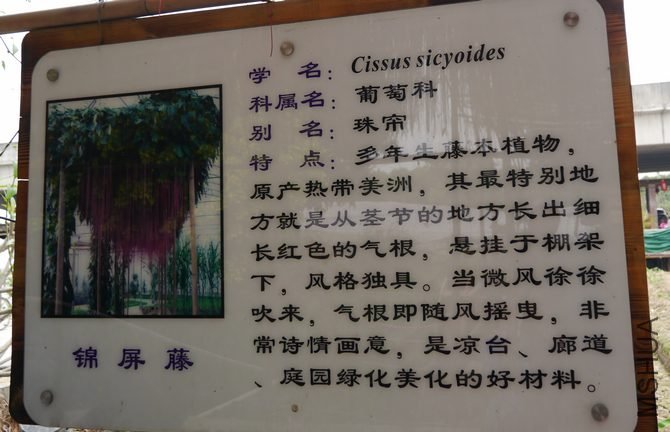 学 名：Cissus sicyoides
科属名：葡萄科
别 名：珠帘
特 点：多年生藤本植物，
原产热带美洲，其最特别地
方就是从茎节的地方长出细
长红色的气根，悬挂于棚架
下，风格独具。当微风徐徐
吹来，气根即随风摇曳，非
常诗情画意，是凉台、廊道
、庭园绿化美化的好材料。
锦屏藤
MSHUA